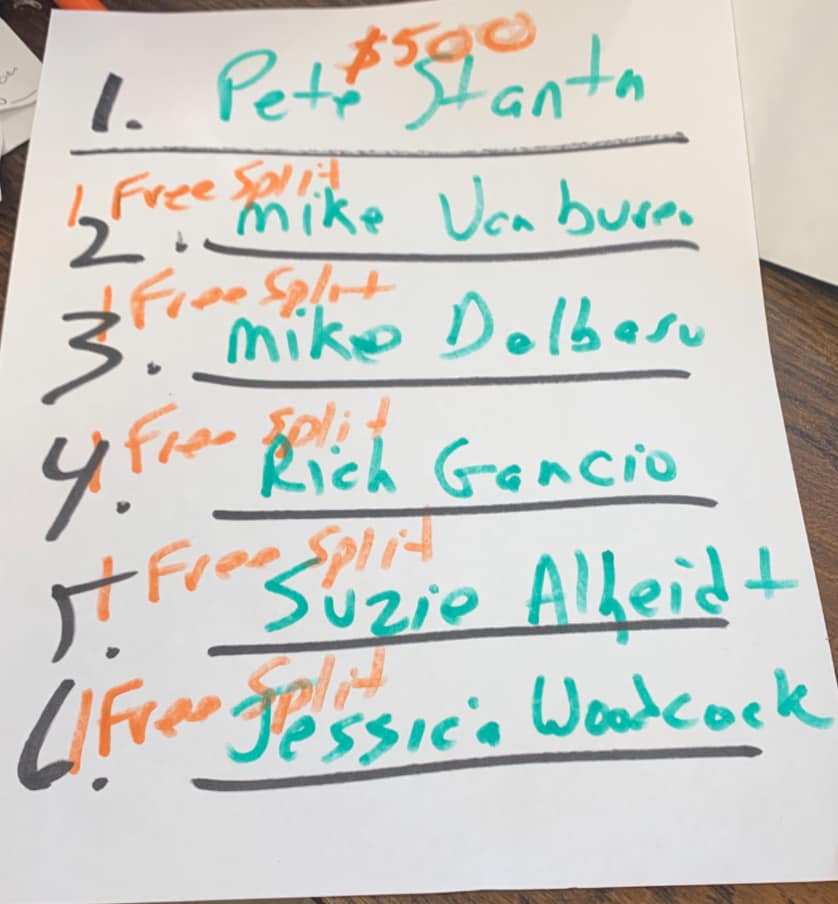 $500
1. Pete Stanta
1 Free Split
2. Mike Van buren
1 Free Split
3. Mike Dolbaru
1 Free Split
4. Rich Gancio
1 Free Split
5. Suzie Alheidt
1 Free Split
6. Jessica Woodcock